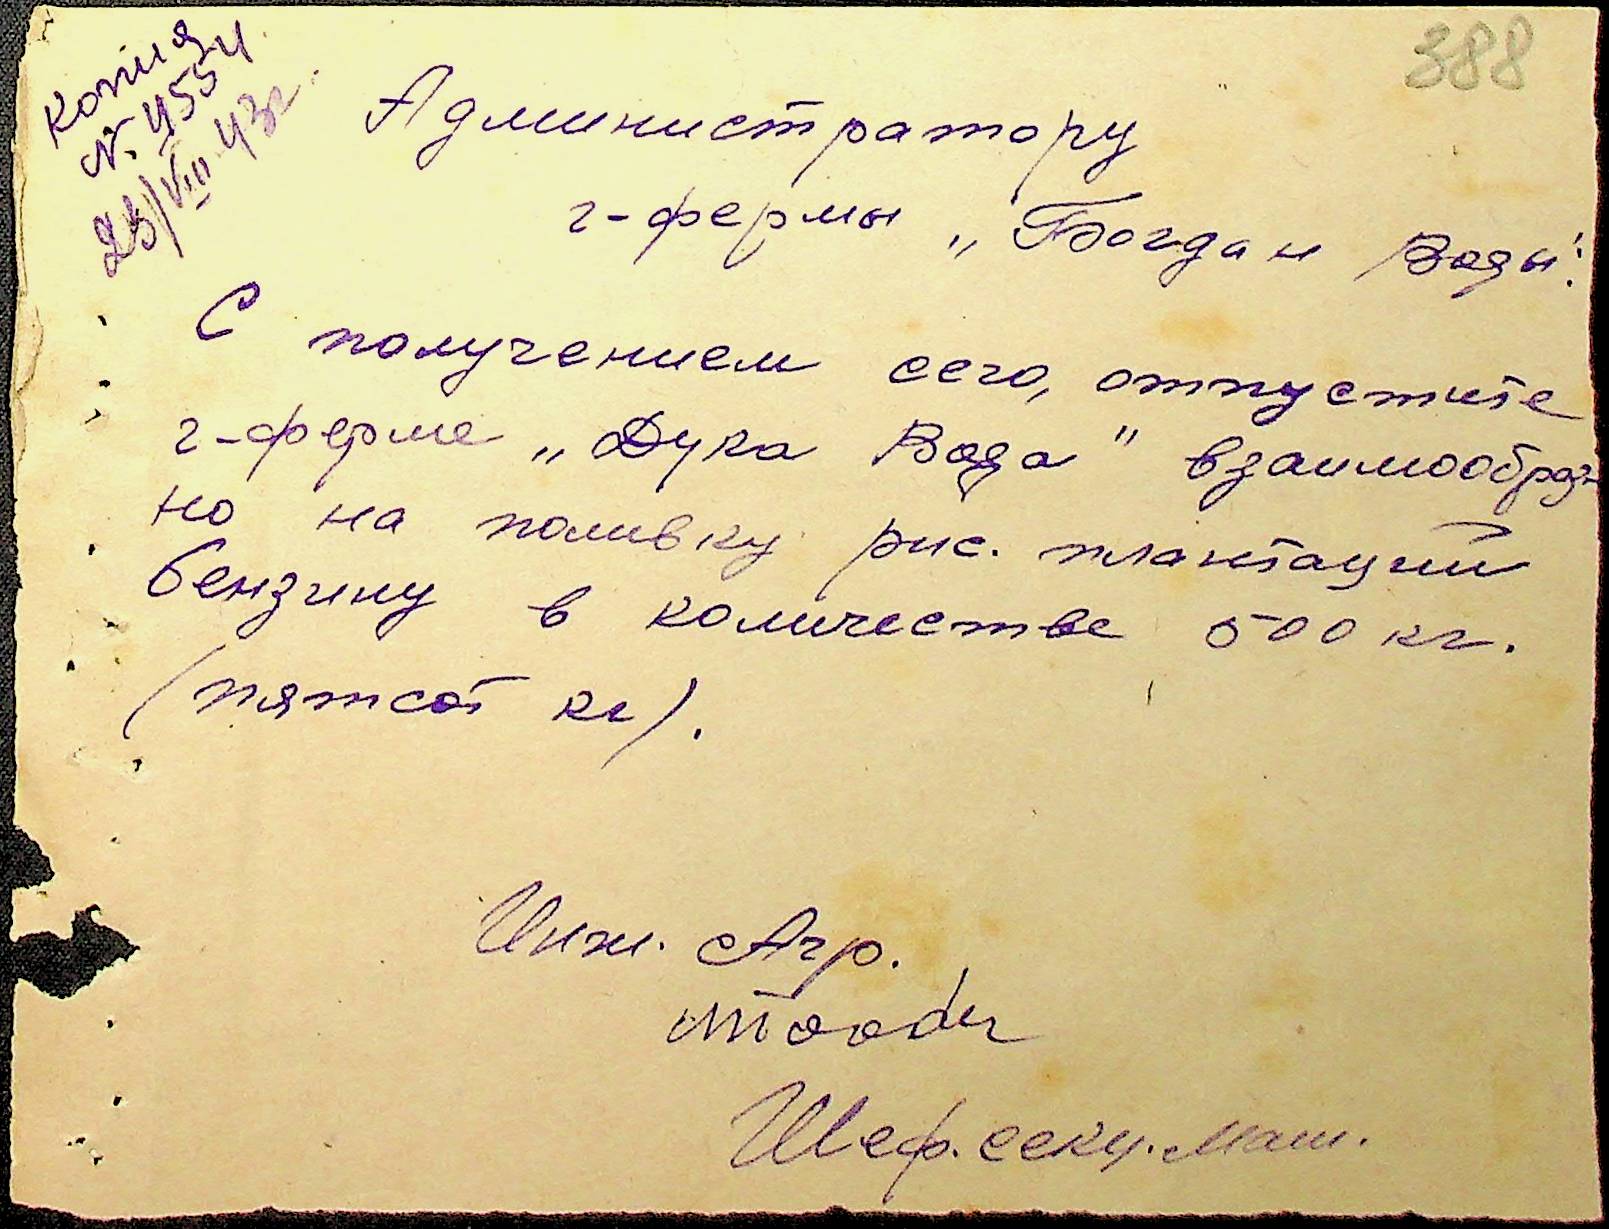 388
Копия
№ 4554
25/VIII 43г.
Администратору
г-фермы „Богдан Воды".
С получением сего, отпустите
г-ферме „Дука Вода" взаимообраз-
но на поливку рис. плантаций
бензину в количестве 500 кг.
(пятсот кг).
Инж. Агр.
Шеф. секц. Маш.